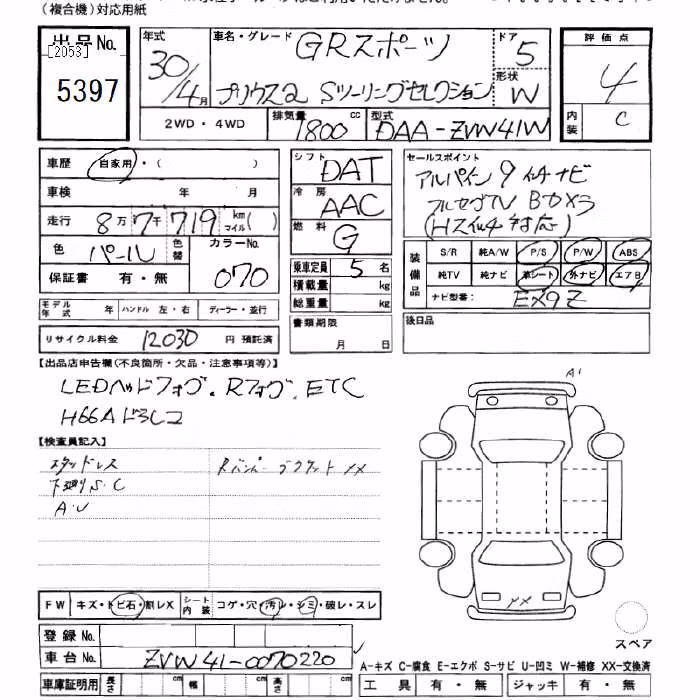 (複合機)対応用紙
出品No.
[2053]
5397
年式
30/4月
車名・グレード
GRスポーツ
プリウスα Sツーリングセレクション
ドア
5
形状
W
評価点
4
内装
C
2WD・4WD
排気量
1800
cc
型式
DAA-ZVW41W
車歴
自家用・( )
車検 年 月
走行 8万7千719 km マイル( )
色 パール
色替
カラーNo.
070
保証書 有・無
モデル年式 年
ハンドル 左・右
ディーラー・並行
リサイクル料金 12030 円 預託済
シフト
DAT
冷房
AAC
燃料
G
乗車定員 5 名
積載量 kg
総重量 kg
書類期限
月 日
セールスポイント
アルパイン9インチナビ
フルセグTV Bカメラ
装備品
S/R 純A/W P/S P/W ABS
純TV 純ナビ 革シート 外ナビ エアB
ナビ型番: EX9Z
後日品
【出品店申告欄(不良箇所・欠品・注意事項等)】
LEDヘッドフォグ.Rフォグ.ETC
【検査員記入】
スタッドレス
下廻りS.C
A.U
Rバンパーブラケットxx
A1
xx
スペア
FW キズ・トビ石・割レX
シート内装
コゲ・穴・汚レ・シミ・破レ・スレ
登録No.
車台No. ZVW41-0070220
A-キズ C-腐食 E-エクボ S-サビ U-凹ミ W-補修 XX-交換済
車庫証明用 長さ cm 幅 cm 高さ cm
工具 有・無 ジャッキ 有・無